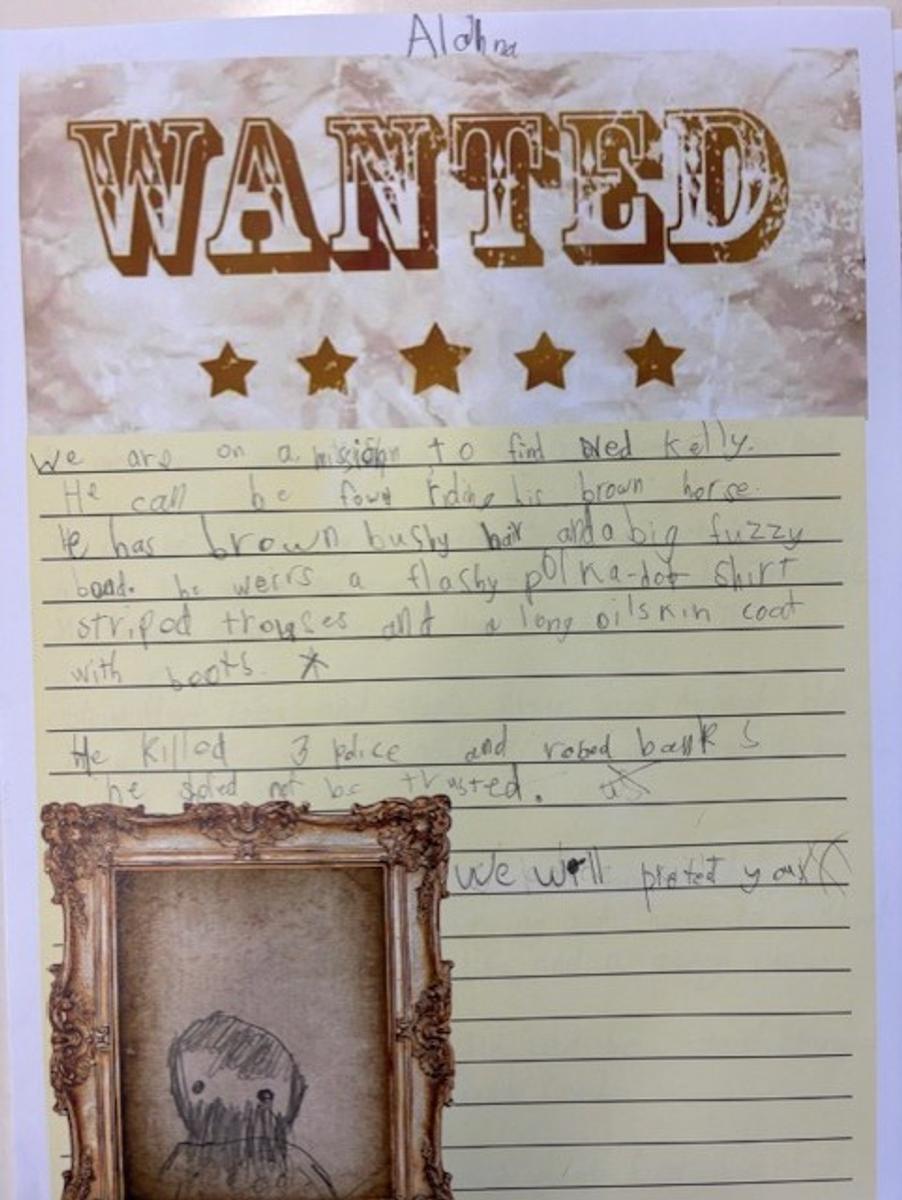 Aldhna
WANTED
We are on a mission to find Ned Kelly.
He can be fown riding his brown horse.
He has brown bushy hair and a big fuzzy
baad. he weirs a flashy polka-dot shirt
striped trouses and a long oilskin coat
with boots.
He killed 3 police and robed banks
he soled not be trusted.
We will protect you